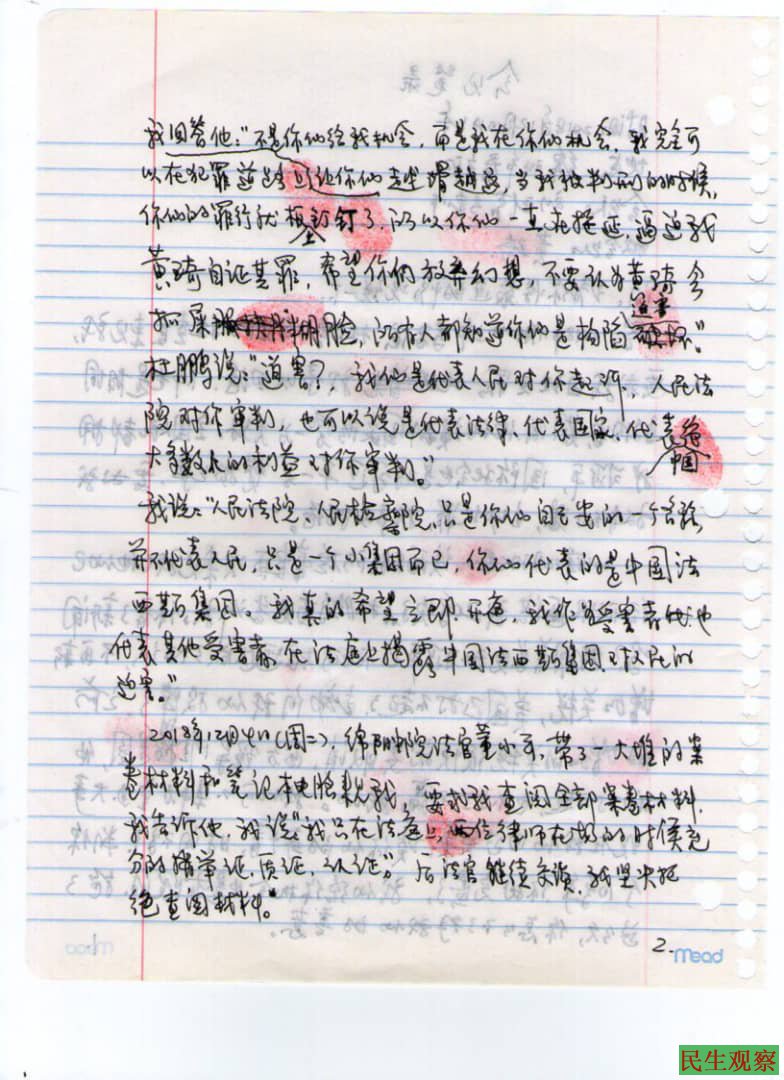 我回答他："不是你们给我机会，而是我在你们机会，我完全可
以在犯罪道路上让你们走坐滑越远，当我被判刑的时候，
你们的罪行就板上钉钉了，所以你们一直在拖延，逼迫我
黄琦自证其罪，希望你们放弃幻想，不要认为黄琦会
抓屎糊脸，所有人都知道你们是构陷迫害。"
杜鹏说："迫害？，我们是代表人民对你起诉，人民法
院对你审判，也可以说是代表法律、代表国家、代表中国绝
大多数人的利益对你审判。"
我说："人民法院、人民检察院，只是你们自己安的一个名称
并不代表人民，只是一个小集团而已，你们代表的是中国法
西斯集团。我真的希望立即开庭，我作为受害者代也
代表其他受害者，在法庭上揭露中国法西斯集团对人民的
迫害。"
2018年12月4日（周二），绵阳中院法官董小军，带了一大堆的案
卷材料和笔记本电脑来找我，要求我查阅全部案卷材料，
我告诉他，我说"我只在法庭上，两位律师在场的时候充
分的举证，质证，认证"。后法官继续交谈，我坚决拒
绝查阅材料。"
2.
Mead
民生观察